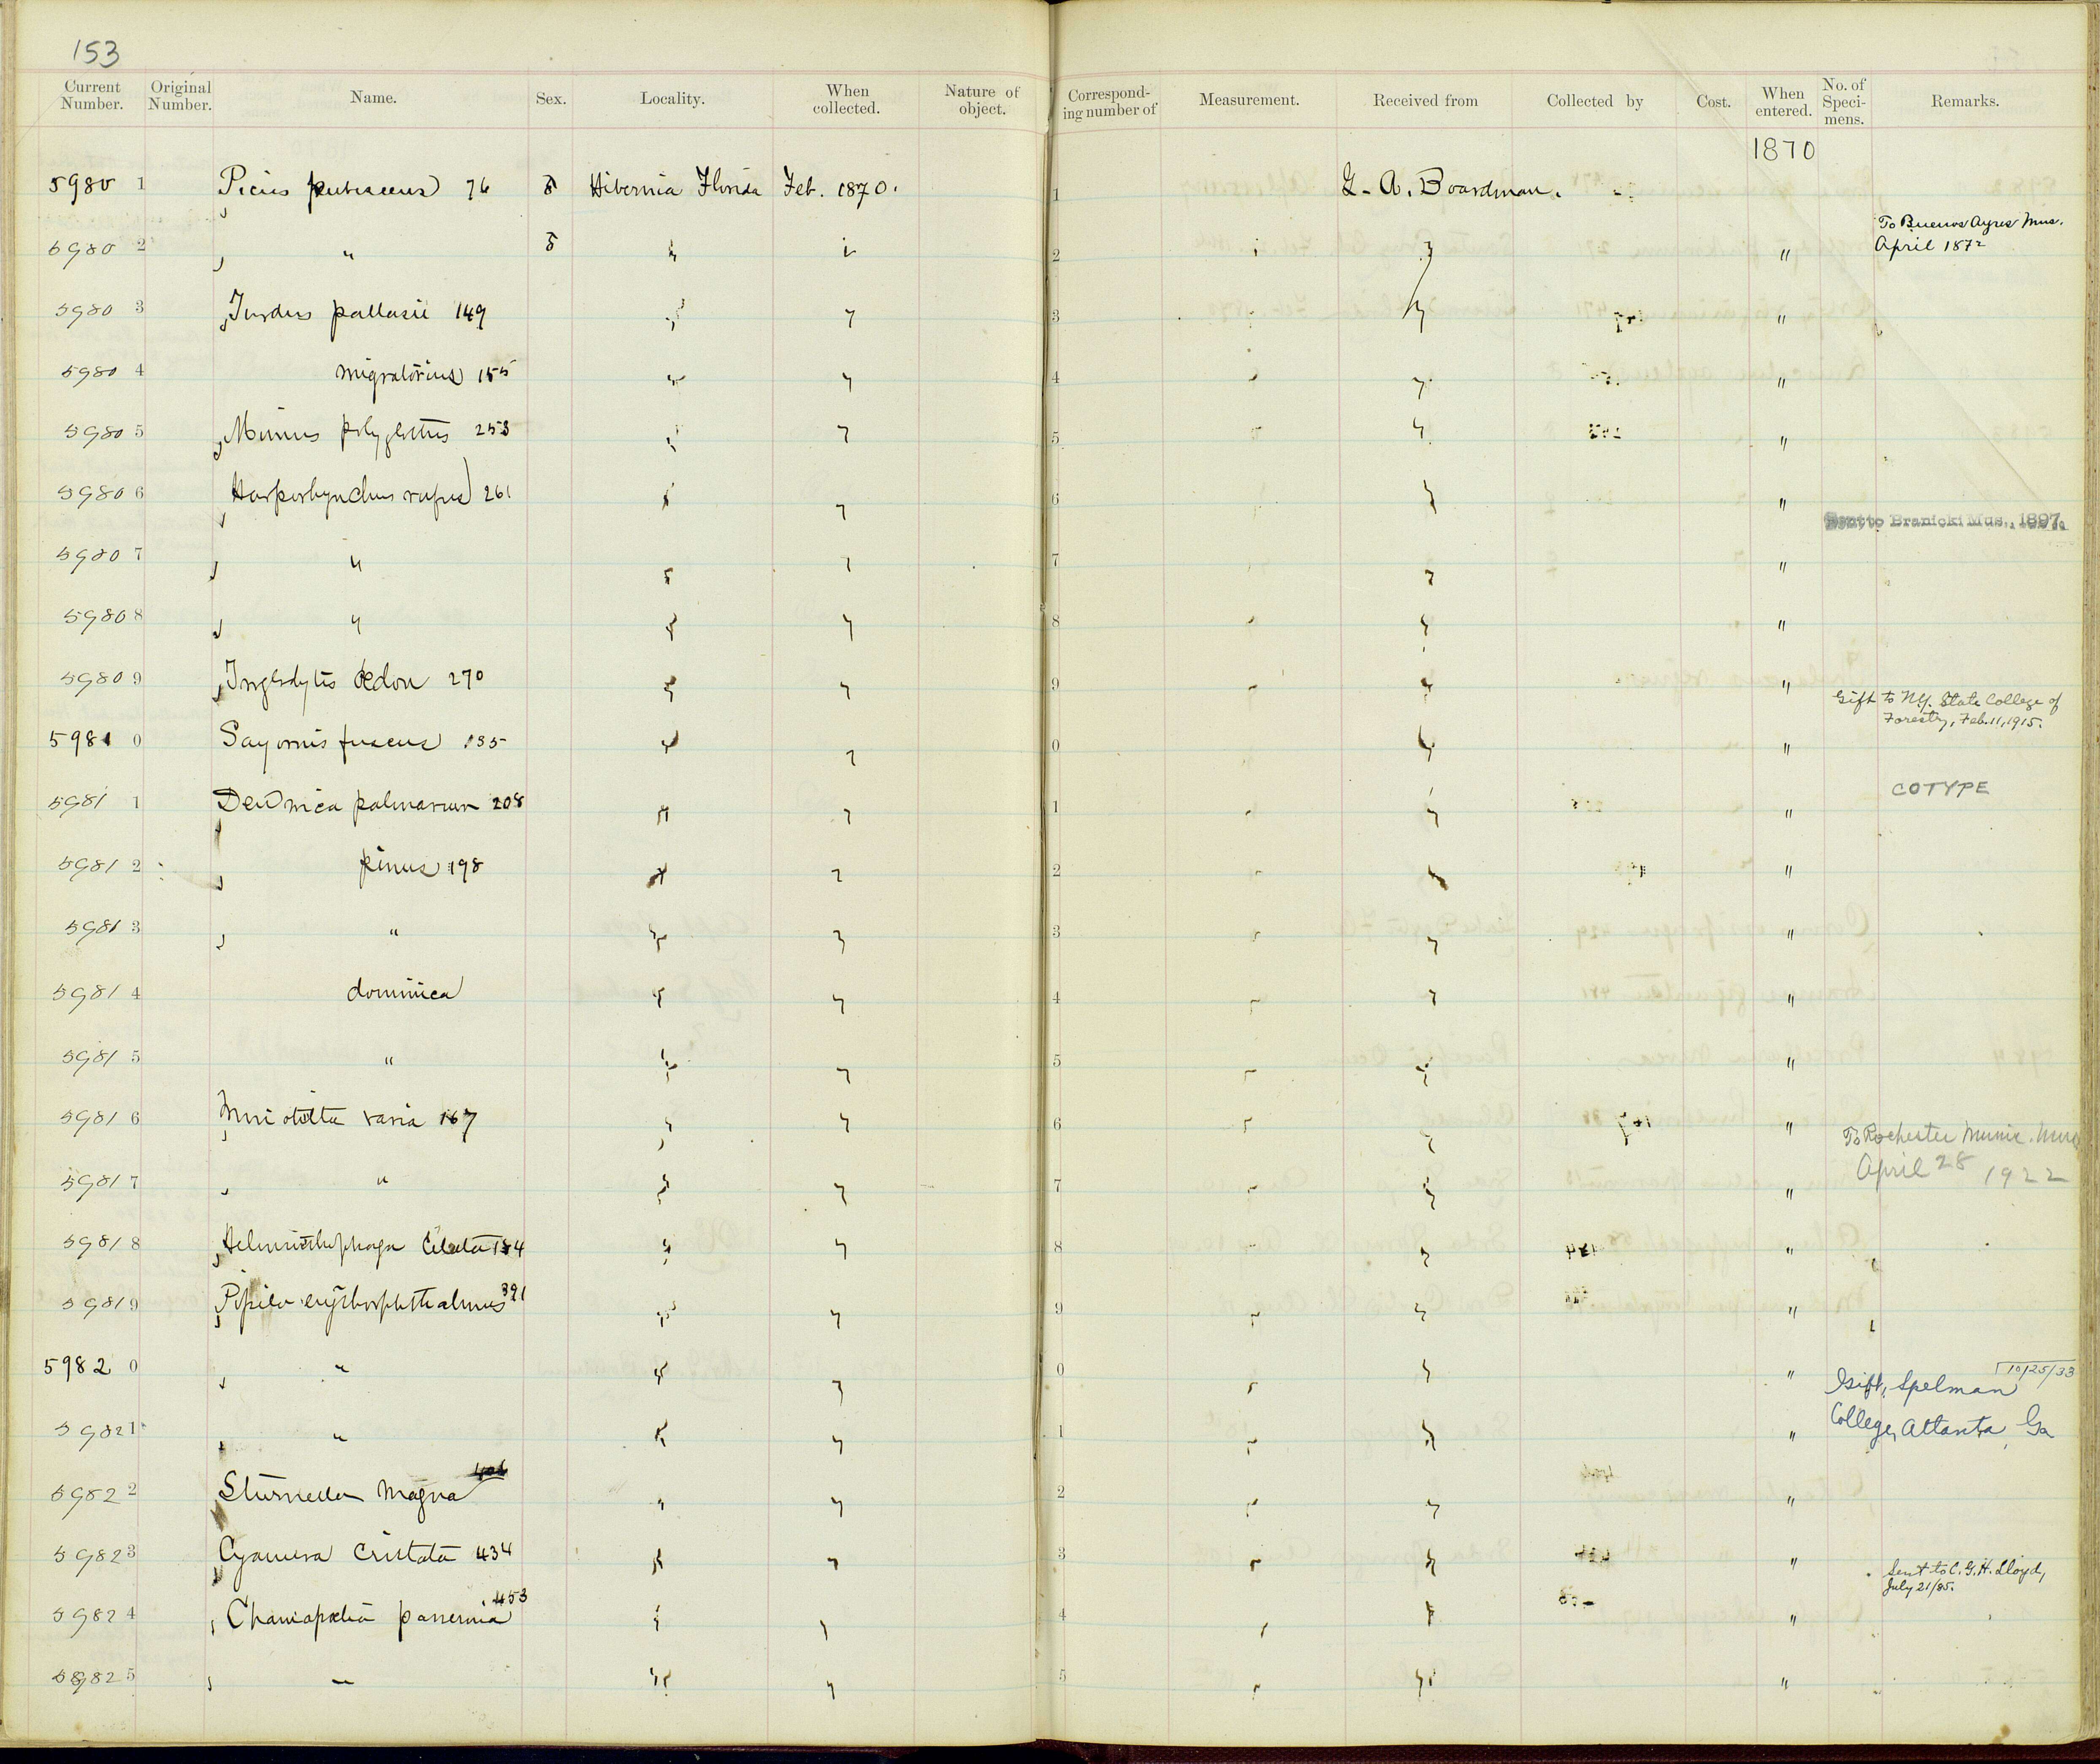 153
Current Number. Original Number. Name. Sex. Locality. When collected. Nature of object. Correspond-ing number of Measurement. Received from Collected by Cost. When entered. No. of Speci-mens. Remarks.
1870
5980 1 Picus pubescens 76 ♂ Hibernia Florida Feb. 1870. 1 G. A. Boardman.
5980 2 " ♂ " " 2 " " To Buenos Ayres Mus. April 1872
5980 3 Turdus pallasii 149 " " 3 " "
5980 4 migratorius 155 " " 4 " "
5980 5 Mimus polyglottus 253 " " 5 " "
5980 6 Harporhynchus rufus 261 " " 6 " " Sent to Branicki Mus., 1897.
5980 7 " " " 7 " "
5980 8 " " " 8 " "
5980 9 Troglodytes aedon 270 " " 9 " " Gift to N.Y. State College of Forestry, Feb. 11, 1915.
5981 0 Sayornis fuscus 135 " " 0 " "
5981 1 Dendroica palmarum 208 " " 1 " " COTYPE
5981 2 pinus 198 " " 2 " "
5981 3 " " " 3 " "
5981 4 dominica " " 4 " "
5981 5 " " " 5 " "
5981 6 Mniotilta varia 167 " " 6 " " To Rochester Munic. Mus. April 28 1922
5981 7 " " " 7 " "
5981 8 Helminthophaga celata 184 " " 8 " "
5981 9 Pipilo erythrophthalmus 391 " " 9 " "
5982 0 " " " 0 " " Gift, Spelman 10/25/33
5982 1 " " " 1 " " College, Atlanta, Ga
5982 2 Sturnella magna 406 " " 2 " "
5982 3 Cyanura cristata 434 " " 3 " " Sent to C. G. H. Lloyd, July 21/85.
5982 4 Chamaepelia passerina 453 " " 4 " "
5982 5 " " " 5 " "